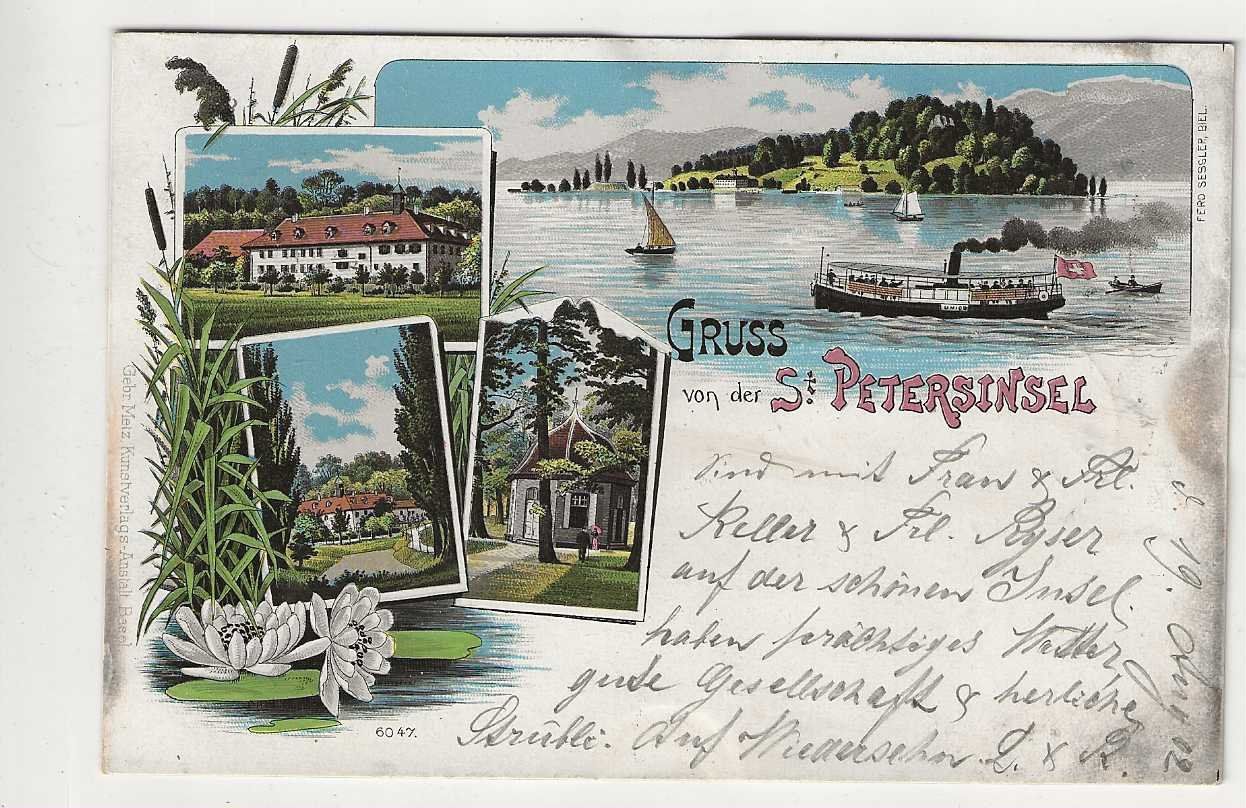 FERD SESSLER, BIEL.
UNION
GRUSS
von der St. PETERSINSEL
Gebr. Metz Kunstverlags-Anstalt Basel
6047.
Sind mit Frau & Frl.
Keller & Frl. Ryser
auf der schönen Insel.
haben prächtiges Wetter
gute Gesellschaft & herliche
Strübli. Auf Wiedersehn. L. & R.
19. 02